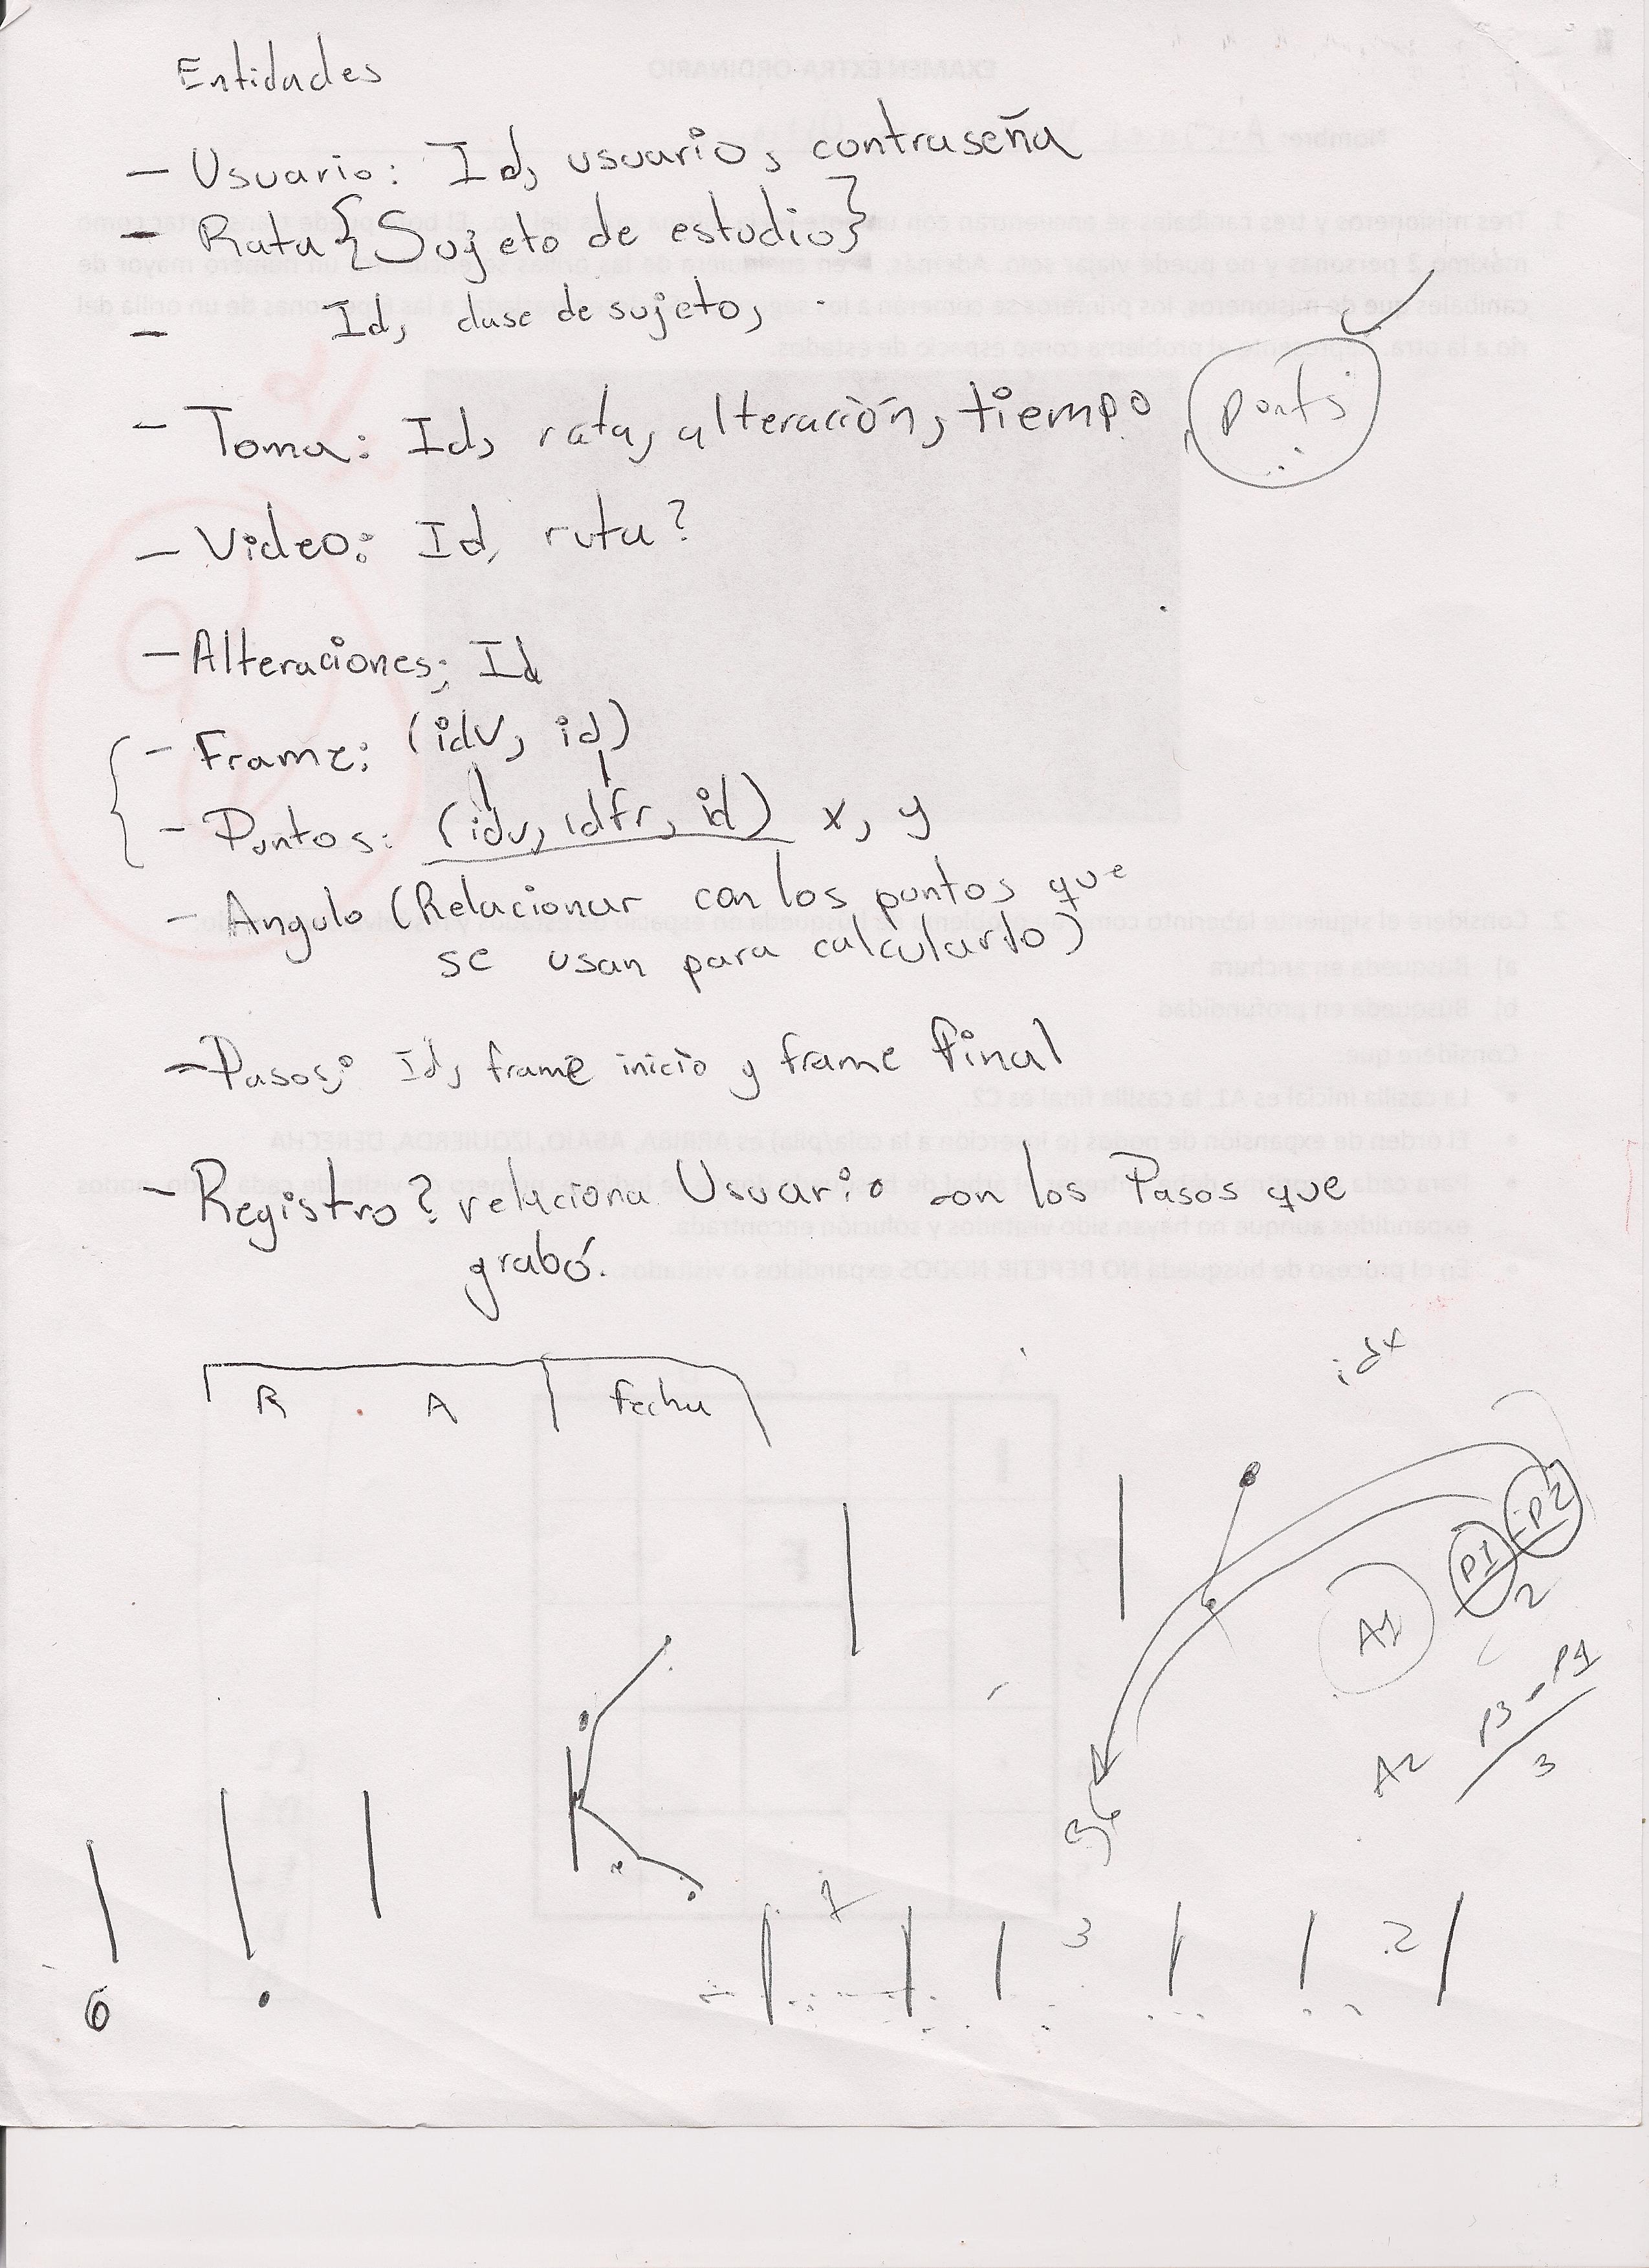 Entidades
- Usuario: Id, usuario, contraseña
- Rata {Sujeto de estudio}
- Id, clase de sujeto,
- Toma: Id, rata, alteración, tiempo
- Video: Id, ruta?
- Alteraciones: Id
- Frame: (idv, id)
- Puntos: (idv, idfr, id) x, y
- Angulo (Relacionar con los puntos que
se usan para calcularlo)
- Pasos: Id, frame inicio y frame final
- Registro? relaciona Usuario con los Pasos que
grabó.
R A fecha
idx
P1 - P2
2
A1
P3 - P4
3
A2
1 3 2